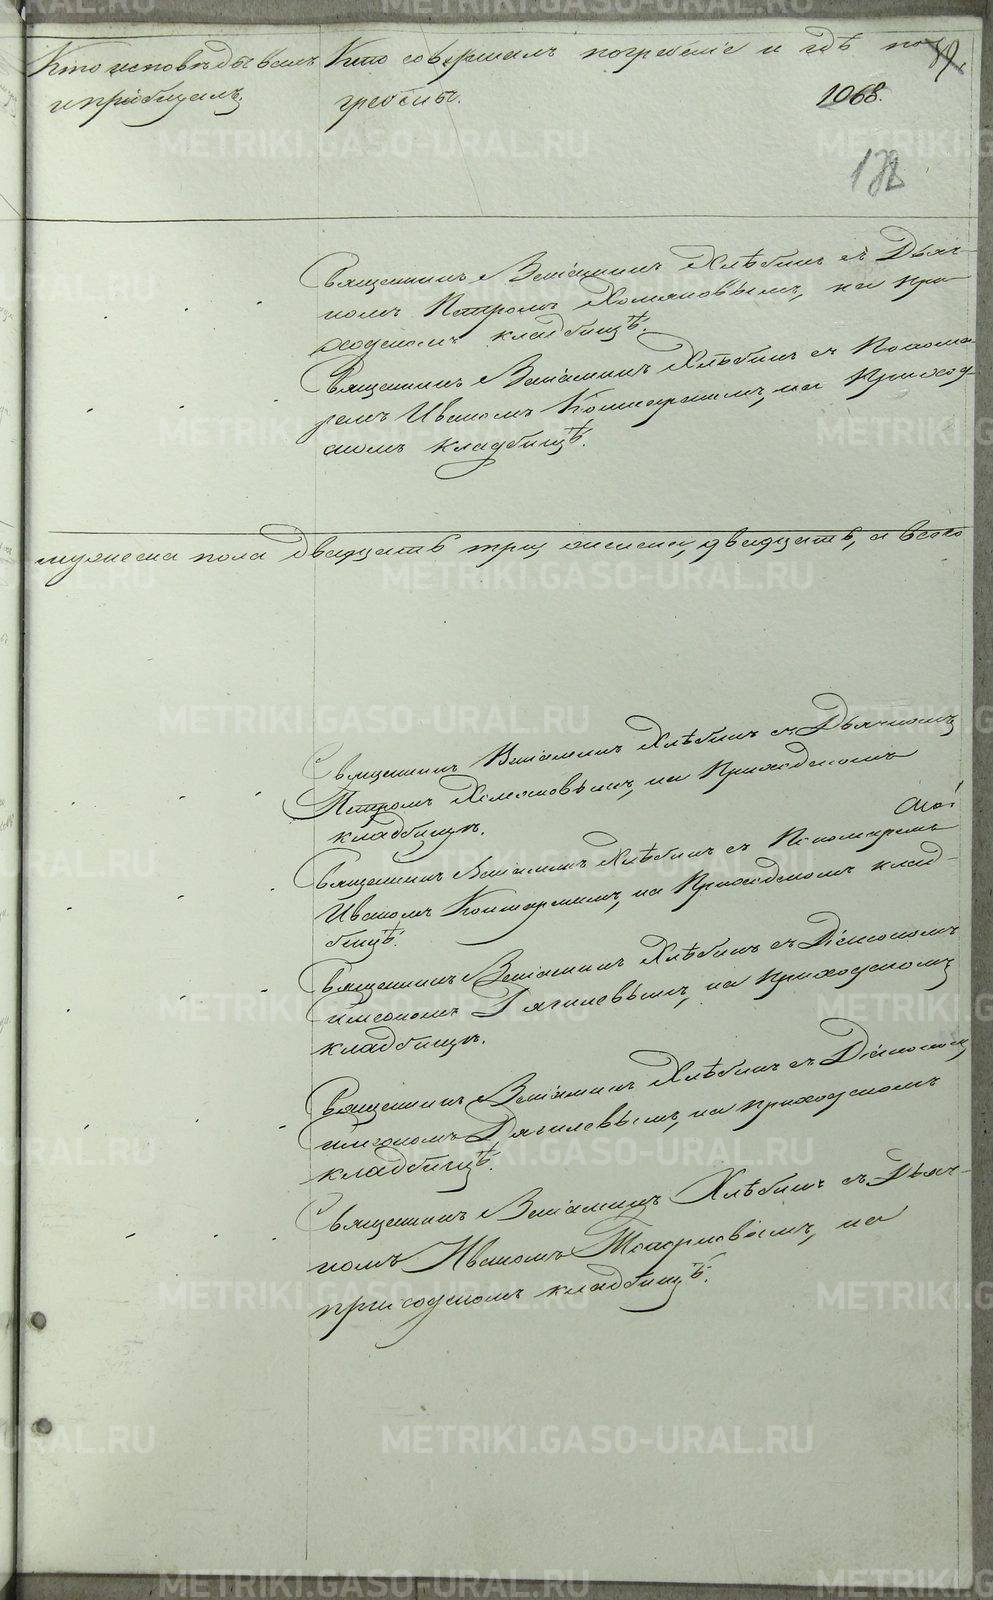 Кто исповѣдывалъ и пріобщалъ.
Кто совершалъ погребеніе и гдѣ по-
гребены.
89.
1068.
132
Священникъ Веніаминъ Хлѣбинъ съ Дьяч-
комъ Петромъ Хомяковымъ, на при-
ходскомъ кладбищѣ.
Священникъ Веніаминъ Хлѣбинъ съ Понома-
ремъ Иваномъ на Приход-
скомъ кладбищѣ.
мужеска пола двадцать три, женска, двадцать, а всего
Священникъ Веніаминъ Хлѣбинъ съ Дьячкомъ
Петромъ Хомяковымъ, на Приходскомъ
кладбищѣ.
Священникъ Веніаминъ Хлѣбинъ съ Пономаремъ
Иваномъ на Приходскомъ клад-
бищѣ.
Священникъ Веніаминъ Хлѣбинъ съ Діакономъ
Симеономъ Дягилевымъ, на приходскомъ
кладбищѣ.
Священникъ Веніаминъ Хлѣбинъ съ Діакономъ
Симеономъ Дягилевымъ, на приходскомъ
кладбищѣ.
Священникъ Веніаминъ Хлѣбинъ съ Дьяч-
комъ Иваномъ Топорковымъ, на
приходскомъ кладбищѣ.
METRIKI.GASO-URAL.RU